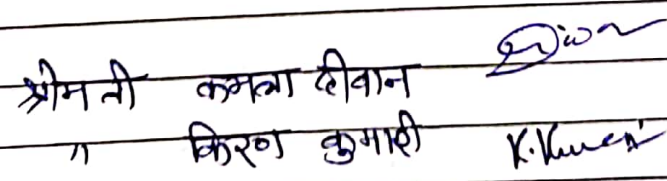 श्रीमती कमला दीवान
" किरण कुमारी K. Kumari